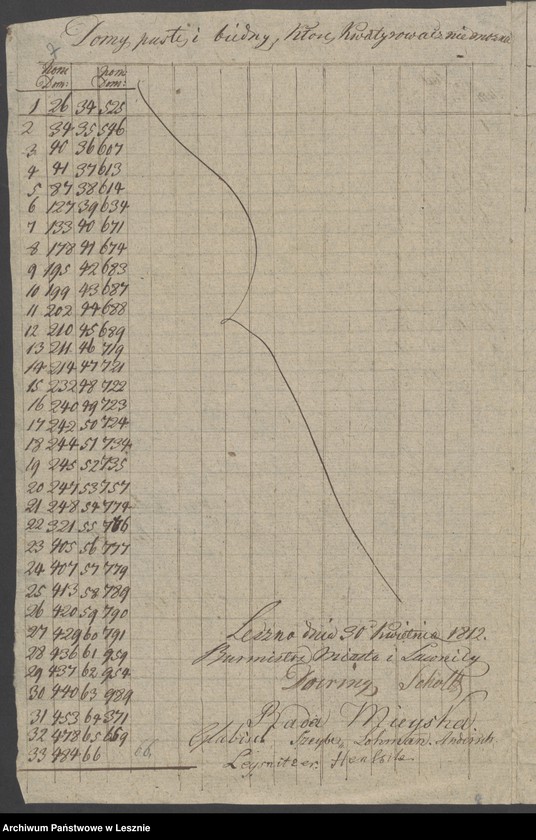 Domy pusti i biedny, które kwatyrować nie można
Nom: Nom:
Dom: Dom:
1 26 34 525
2 34 35 546
3 40 36 607
4 41 37 613
5 87 38 614
6 127 39 634
7 133 40 671
8 178 41 674
9 195 42 683
10 199 43 687
11 202 44 688
12 210 45 689
13 211 46 719
14 214 47 721
15 232 48 722
16 240 49 723
17 242 50 724
18 244 51 734
19 245 52 735
20 247 53 757
21 248 54 774
22 321 55 776
23 405 56 777
24 407 57 779
25 413 58 789
26 420 59 790
27 429 60 791
28 436 61 959
29 437 62 954
30 440 63 989
31 453 64 371
32 478 65 669
33 484 66
66
Leszno dnia 30 Kwietnia 1812.
Burmistrz Miasta i Ławnicy
Scholtz
Rada Mieyska
Szeyber Lohman
Archiwum Państwowe w Lesznie